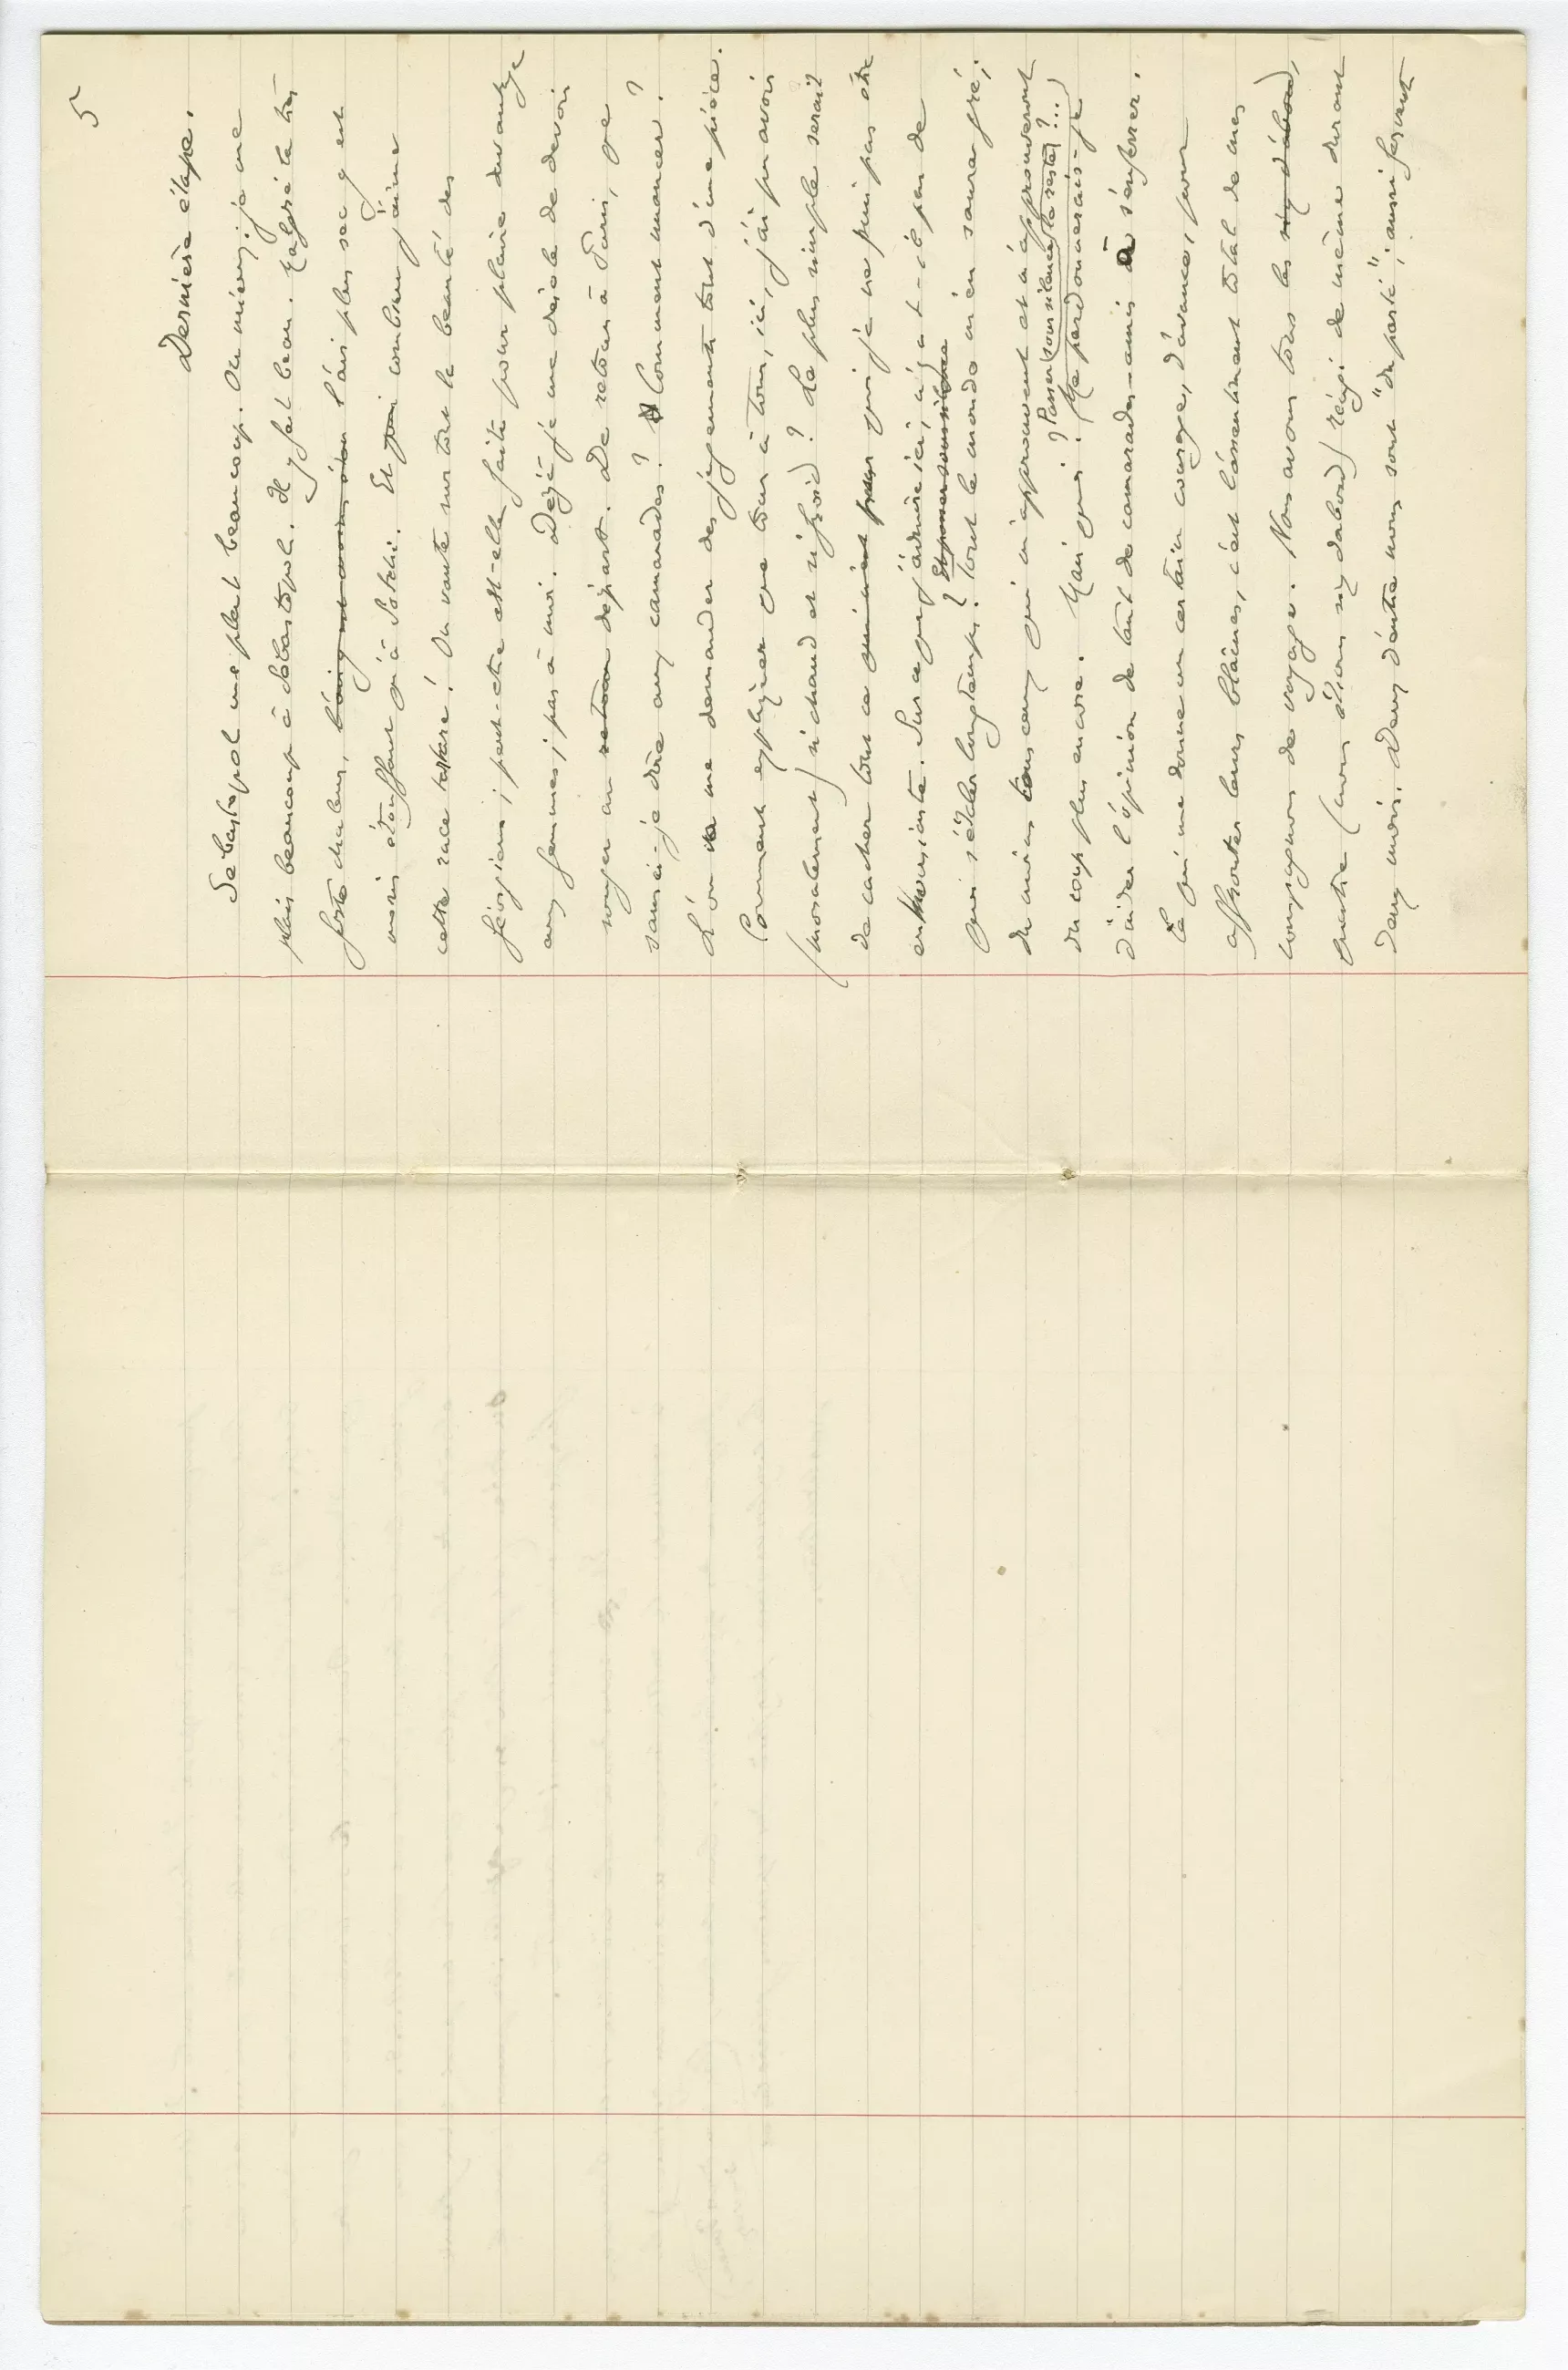 5
Dernière étape.
Sebastopol me plaît beaucoup. Ou mieux : je me
plais beaucoup à Sébastopol. Il y fait beau. Malgré la très
forte chaleur, l'air plus sec y est
moins étouffant qu'à Sotchi. Et combien j'aime
cette race tartare ! On vante surtout la beauté des
Géorgiens ; peut-être est-elle faite pour plaire davantage
aux femmes ; pas à moi. Déjà je me désole de devoir
songer au retour départ. De retour à Paris, que
saurai-je dire aux camarades ? Comment nuancer ?
L'on va me demander des jugements tout d'une pièce.
Comment expliquer que tour à tour, ici, j'ai pu avoir
(moralement) si chaud et si froid ? Le plus simple serait
de cacher tout ce qui n'est pour quoi je ne puis pas être
enthousiaste. Sur ce que j'admire ici, n'y a-t-il pas de
Et passer sous silence
quoi s'étendre longtemps ? Tout le monde m'en saura gré ;
du moins tous ceux qui m'approuvent et m'approuveront
? Passer sous silence le reste ?...)
du coup plus encore. Mais quoi ! Me pardonnerais-je
d'aider l'opinion de tant de camarades-amis à s'enferrer.
Ce qui me donne un certain courage, d'avance, pour
affronter leurs blâmes, c'est l'assentiment total de mes
compagnons de voyage. Nous avons tous les six d'abord,
quatre (nous étions six d'abord) réagi de même durant
deux mois. Deux d'entre nous sont "du parti" ; aussi fervent